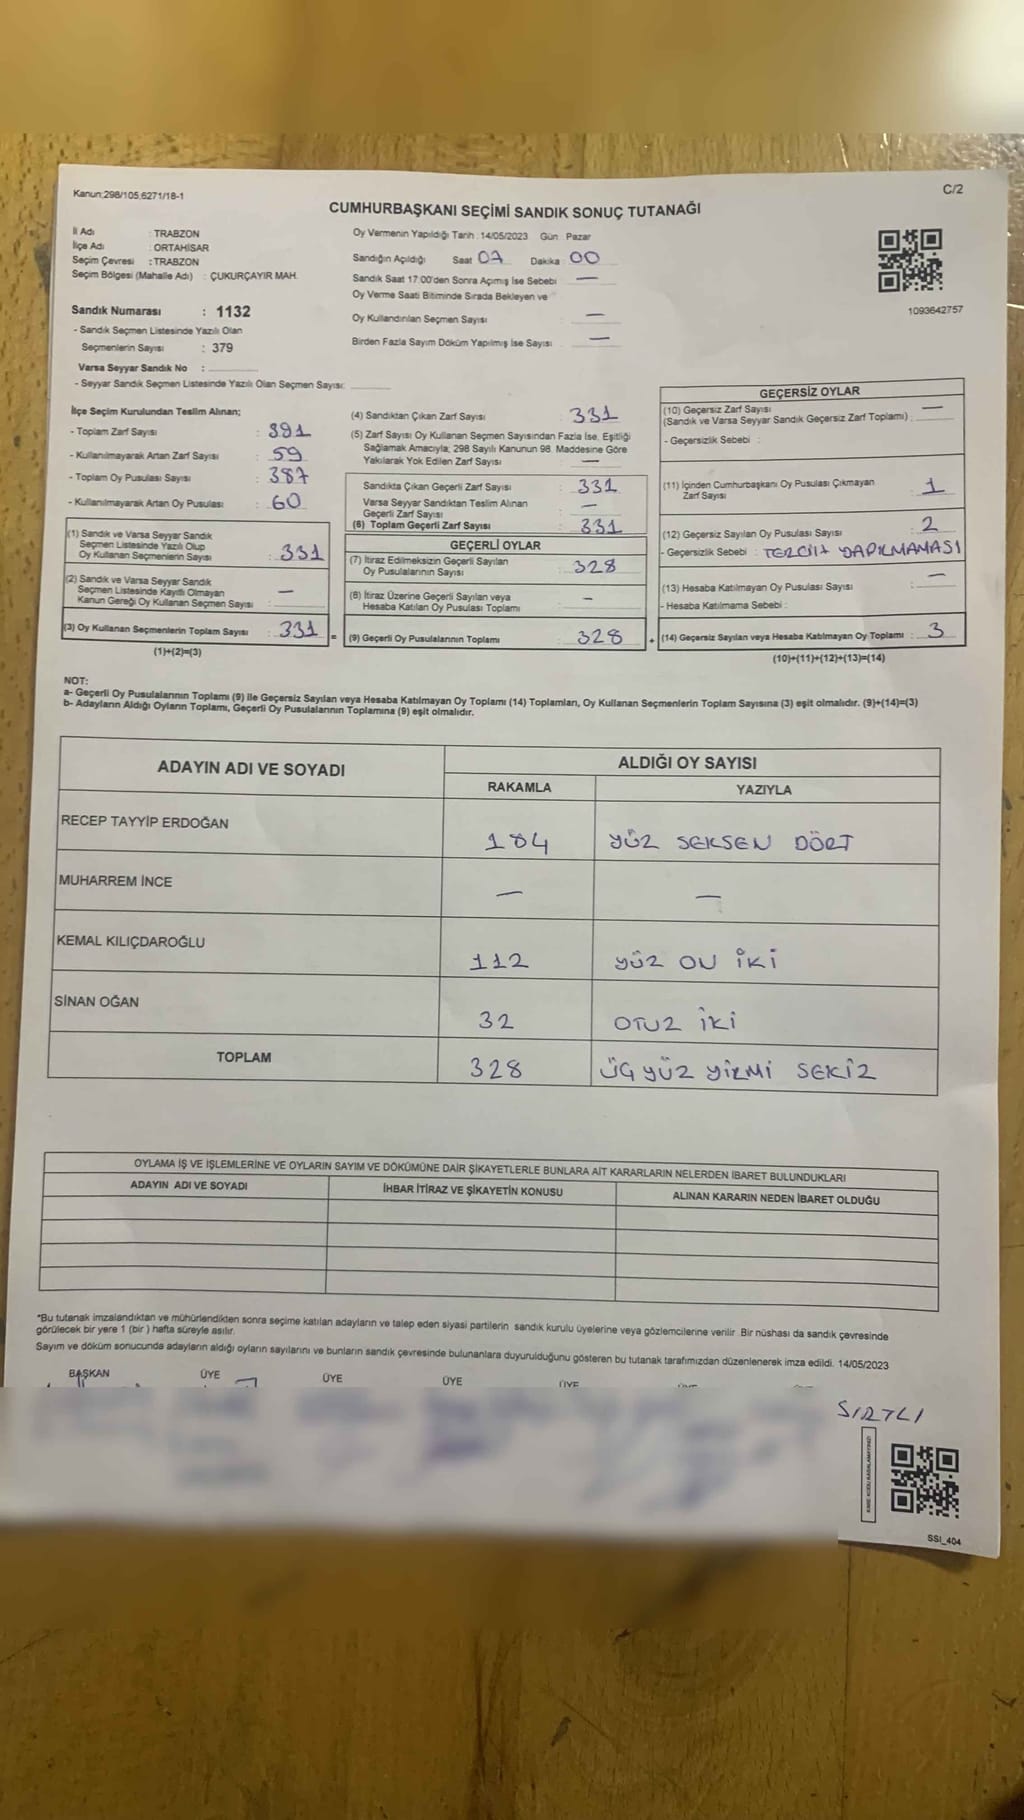 Kanun;298/105,6271/18-1
C/2
CUMHURBAŞKANI SEÇİMİ SANDIK SONUÇ TUTANAĞI
İl Adı : TRABZON
İlçe Adı : ORTAHİSAR
Seçim Çevresi : TRABZON
Seçim Bölgesi (Mahalle Adı) : ÇUKURÇAYIR MAH.
Sandık Numarası : 1132
- Sandık Seçmen Listesinde Yazılı Olan
Seçmenlerin Sayısı : 379
Varsa Seyyar Sandık No :
- Seyyar Sandık Seçmen Listesinde Yazılı Olan Seçmen Sayısı:
Oy Vermenin Yapıldığı Tarih : 14/05/2023 Gün : Pazar
Sandığın Açıldığı Saat 07 Dakika : 00
Sandık Saat 17:00'den Sonra Açımış İse Sebebi —
Oy Verme Saati Bitiminde Sırada Bekleyen ve
Oy Kullandırılan Seçmen Sayısı —
Birden Fazla Sayım Döküm Yapılmış İse Sayısı —
1093642757
İlçe Seçim Kurulundan Teslim Alınan;
- Toplam Zarf Sayısı : 391
- Kullanılmayarak Artan Zarf Sayısı : 59
- Toplam Oy Pusulası Sayısı : 387
- Kullanılmayarak Artan Oy Pusulası : 60
(1) Sandık ve Varsa Seyyar Sandık
Seçmen Listesinde Yazılı Olup
Oy Kullanan Seçmenlerin Sayısı : 331
(2) Sandık ve Varsa Seyyar Sandık
Seçmen Listesinde Kayıtlı Olmayan
Kanun Gereği Oy Kullanan Seçmen Sayısı : —
(3) Oy Kullanan Seçmenlerin Toplam Sayısı : 331 =
(1)+(2)=(3)
(4) Sandıktan Çıkan Zarf Sayısı : 331
(5) Zarf Sayısı Oy Kullanan Seçmen Sayısından Fazla İse, Eşitliği
Sağlamak Amacıyla; 298 Sayılı Kanunun 98. Maddesine Göre
Yakılarak Yok Edilen Zarf Sayısı : —
Sandıkta Çıkan Geçerli Zarf Sayısı : 331
Varsa Seyyar Sandıktan Teslim Alınan
Geçerli Zarf Sayısı : —
(6) Toplam Geçerli Zarf Sayısı : 331
GEÇERLİ OYLAR
(7) İtiraz Edilmeksizin Geçerli Sayılan
Oy Pusulalarının Sayısı : 328
(8) İtiraz Üzerine Geçerli Sayılan veya
Hesaba Katılan Oy Pusulası Toplamı : —
(9) Geçerli Oy Pusulalarının Toplamı : 328 +
GEÇERSİZ OYLAR
(10) Geçersiz Zarf Sayısı
(Sandık ve Varsa Seyyar Sandık Geçersiz Zarf Toplamı) : —
- Geçersizlik Sebebi :
(11) İçinden Cumhurbaşkanı Oy Pusulası Çıkmayan
Zarf Sayısı : 1
(12) Geçersiz Sayılan Oy Pusulası Sayısı : 2
- Geçersizlik Sebebi : TERCİH YAPILMAMASI
(13) Hesaba Katılmayan Oy Pusulası Sayısı : —
- Hesaba Katılmama Sebebi :
(14) Geçersiz Sayılan veya Hesaba Katılmayan Oy Toplamı : 3
(10)+(11)+(12)+(13)=(14)
NOT:
a- Geçerli Oy Pusulalarının Toplamı (9) ile Geçersiz Sayılan veya Hesaba Katılmayan Oy Toplamı (14) Toplamları, Oy Kullanan Seçmenlerin Toplam Sayısına (3) eşit olmalıdır. (9)+(14)=(3)
b- Adayların Aldığı Oyların Toplamı, Geçerli Oy Pusulalarının Toplamına (9) eşit olmalıdır.
ADAYIN ADI VE SOYADI
ALDIĞI OY SAYISI
RAKAMLA YAZIYLA
RECEP TAYYİP ERDOĞAN 184 YÜZ SEKSEN DÖRT
MUHARREM İNCE — —
KEMAL KILIÇDAROĞLU 112 YÜZ ON İKİ
SİNAN OĞAN 32 OTUZ İKİ
TOPLAM 328 ÜÇ YÜZ YİRMİ SEKİZ
OYLAMA İŞ VE İŞLEMLERİNE VE OYLARIN SAYIM VE DÖKÜMÜNE DAİR ŞİKAYETLERLE BUNLARA AİT KARARLARIN NELERDEN İBARET BULUNDUKLARI
ADAYIN ADI VE SOYADI İHBAR İTİRAZ VE ŞİKAYETİN KONUSU ALINAN KARARIN NEDEN İBARET OLDUĞU
*Bu tutanak imzalandıktan ve mühürlendikten sonra seçime katılan adayların ve talep eden siyasi partilerin sandık kurulu üyelerine veya gözlemcilerine verilir. Bir nüshası da sandık çevresinde
görülecek bir yere 1 (bir) hafta süreyle asılır.
Sayım ve döküm sonucunda adayların aldığı oyların sayılarını ve bunların sandık çevresinde bulunanlara duyurulduğunu gösteren bu tutanak tarafımızdan düzenlenerek imza edildi. 14/05/2023
BAŞKAN ÜYE ÜYE ÜYE ÜYE
SIRTLI
SSI_404